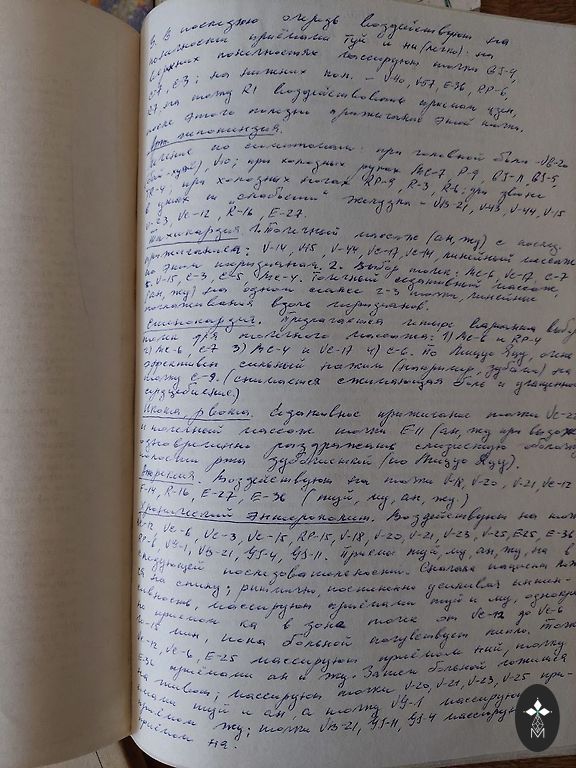 9. В последнюю очередь воздействуют на
конечности приёмами туй и на (легко): на
верхних конечностях массируют точки GI-4,
C-7, C-3; на нижних кон. – V-40, V-57, E-36, RP-6,
на точку R1 воздействовать приемом цзен,
после этого полезно прижигание этой точки.
гипотензия.
Лечение по симптомам: при головной боли – VB-20
V-10; при холодных руках MC-7, P-9, GI-11, GI-5,
GI-4; при холодных ногах RP-9, R-3, R-6; при звоне
в ушах и "слабости" желудка – VB-21, V-43, V-44, V-15
V-23, VC-12, R-16, E-27.
Тахикардия. 1. Точечный массаж (ан, жу) с послед.
прижиганием: V-14, V-15, V-44, VC-17, VC-14, линейный массаж
по этим меридианам. 2. Выбор точек: MC-6, VC-17, C-7
V-15, C-3, C-5, MC-4. Точечный седативный массаж
(ан, жу) на одном сеансе 2-3 точки, линейные
поглаживания вдоль меридианов.
Стенокардия. Предлагается четыре варианта выбора
точек для точечного массажа: 1) MC-6 и RP-4
2) MC-6, C-7 3) MC-4 и VC-17 4) C-6. По Тиццо Яцу, очень
эффективен сильный нажим (например, зубами) на
точку C-9. (снимается сжимающая боль и учащенное
сердцебиение.)
Икота, рвота. Седативное прижигание точки VC-22
и точечный массаж точки E-11 (ан, жу при выдохе
одновременно раздражение слизистую оболочку
полости рта зубочисткой (по Тиццо Яцу).
Анорексия. Воздействуют на точки V-18, V-20, V-21, VC-12
F-14, R-16, E-27, E-36 (туй, му, ан, жу.)
Хронический энтероколит. Воздействуют на точки
VC-12, VC-6, VC-3, VC-15, RP-15, V-18, V-20, V-21, V-23, V-25, E-25, E-36,
RP-6, VG-1, VB-21, GI-4, GI-11. Приемы туй, му, ан, жу, на в
следующей последовательности. Сначала пациент ложит
ся на спину; ритмично, постепенно усиливая интен-
сивность, массируют приёмами туй и му, однократ
но приемом ка в зоне точек от VC-12 до VC-6
10-15 мин, пока больной почувствует тепло. Точки
VC-12, VC-6, E-25 массируют приёмом ний, точку
E-36 приёмами ан и жу. Затем больной ложится
на живот; массируют точки V-20, V-21, V-23, V-25 при-
ёмами туй и ан, а точку VG-1 массируют
приёмом жу; точки VB-21, GI-11, GI-4 массируют
приёмом на.